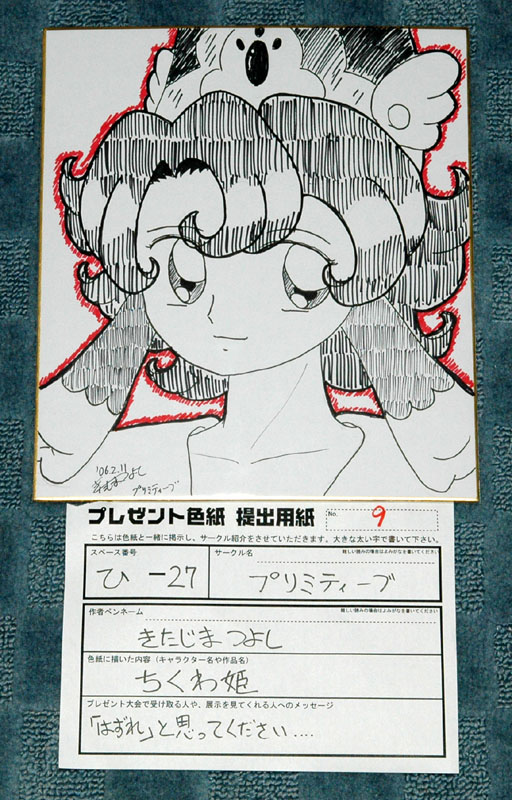 '06.2.11
きたじまつよし
プリミティーブ
プレゼント色紙 提出用紙
No. 9
こちらは色紙と一緒に掲示し、サークル紹介をさせていただきます。大きな太い字で書いて下さい。
スペース番号
サークル名
難しい読みの場合はよみがなを書いてください
ひ-27
プリミティーブ
作者ペンネーム
難しい読みの場合はよみがなを書いてください
きたじまつよし
色紙に描いた内容（キャラクター名や作品名）
ちくわ姫
プレゼント大会で受け取る人や、展示を見てくれる人へのメッセージ
「はずれ」と思ってください....